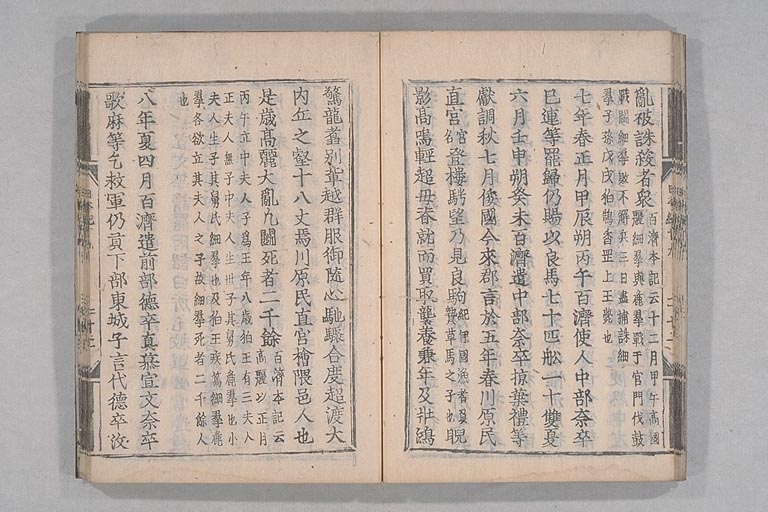 亂被誅殺者衆百濟本記云十二月甲午高國
麗細羣與麁羣戰于宮門伐鼓
戰鬪細羣敗不解兵三日盡捕誅細
羣子孫戊戌狛鵠香罡上王薨也
七年春正月甲辰朔丙午百濟使人中部奈卒
巳連等罷歸仍賜以良馬七十匹舩一十隻夏
六月壬申朔癸未百濟遣中部奈卒掠葉禮等
獻調秋七月倭國今來郡言於五年春川原民
直宮宮名登樓騁望乃見良駒紀伊國漁者負
贄草馬之子也睨
影高鳴輕超母脊就而買取襲養兼年及壯鴻
驚龍翥別輩越群服御隨心馳驟合度超渡大
內丘之壑十八丈焉川原民直宮檜隈邑人也
是歲高麗大亂凡鬪死者二千餘百濟本記云
高麗以正月
丙午立中夫人子爲王年八歲狛王有三夫人
正夫人無子中夫人生世子其舅氏麁羣也小
夫人生子其舅氏細羣也及狛王疾篤細羣麁
羣各欲立其夫人之子故細羣死者二千餘人
也
八年夏四月百濟遣前部德卒真慕宣文奈卒
歌麻等乞救軍仍貢下部東城子言代德卒汶